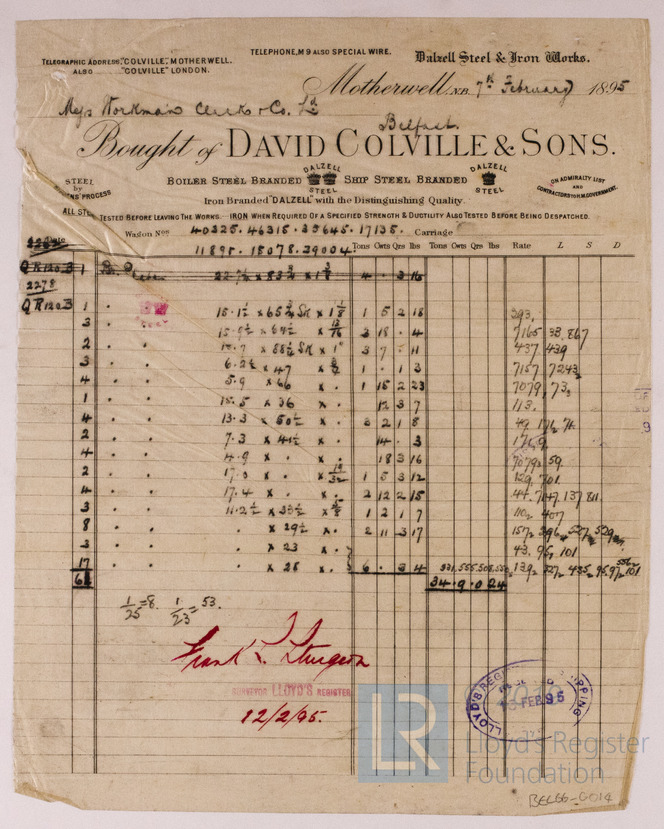 TELEPHONE, M 9 ALSO SPECIAL WIRE.
TELEGRAPHIC ADDRESS, "COLVILLE", MOTHERWELL.
ALSO "COLVILLE" LONDON.
Dalzell Steel & Iron Works.
Motherwell, N.B. 7th February 1895
Messrs Workman Clark & Co. Ld
Belfast.
Bought of DAVID COLVILLE & SONS.
STEEL by SIEMENS' PROCESS
BOILER STEEL BRANDED DALZELL STEEL SHIP STEEL BRANDED DALZELL STEEL
ON ADMIRALTY LIST AND CONTRACTORS TO H.M. GOVERNMENT.
Iron Branded "DALZELL" with the Distinguishing Quality.
ALL STEEL TESTED BEFORE LEAVING THE WORKS. IRON WHEN REQUIRED OF A SPECIFIED STRENGTH & DUCTILITY ALSO TESTED BEFORE BEING DESPATCHED.
Wagon Nos 40225. 46315. 35645. 17135. Carriage
11895. 15078. 29004.
Tons Cwts Qrs lbs Tons Cwts Qrs lbs Rate L S D
QR120B 1
2278
QR120B 1 15.1½ × 65¾ SK × 1⅛ 1 5 2 18 293.
3 × 64½ × 13/16 3 18 . 4 7165 38. 867
2 × 58½ SK × 1" 3 7 . 11 437 439
3 6.2½ × 47 1 . 1 3 7157 7243
4 5.9 × 66 × . 1 15 2 23 7079, 73,
1 15.5 × 36 × . 12 3 7 113.
4 13.3 × 50½ × . 3 2 1 8 49. 176, 74
2 7.3 × 41½ × . 14 . 3
4 4.9 × . × . 18 3 16 7079, 59.
2 17.3 × . 1 5 3 12 129, 701
4 17.4 × . × . 2 12 2 15 44. 7147. 137 811
3 11.2½ × 33½ 1 2 1 7 110, 407
8 × 29½ × . 2 11 3 17
3 × 23 × . 43. 95, 101
17 × 25 × . 6 . 3 4
34 . 9 . 0 24
1/25 = 8. 1/23 = 53.
Frank L. Sturgeon
SURVEYOR LLOYD'S REGISTER
12/2/95.
LLOYD'S REGISTER SHIPPING
13 FEB 95
LR
Lloyd's Register
Foundation
BEL66-0014